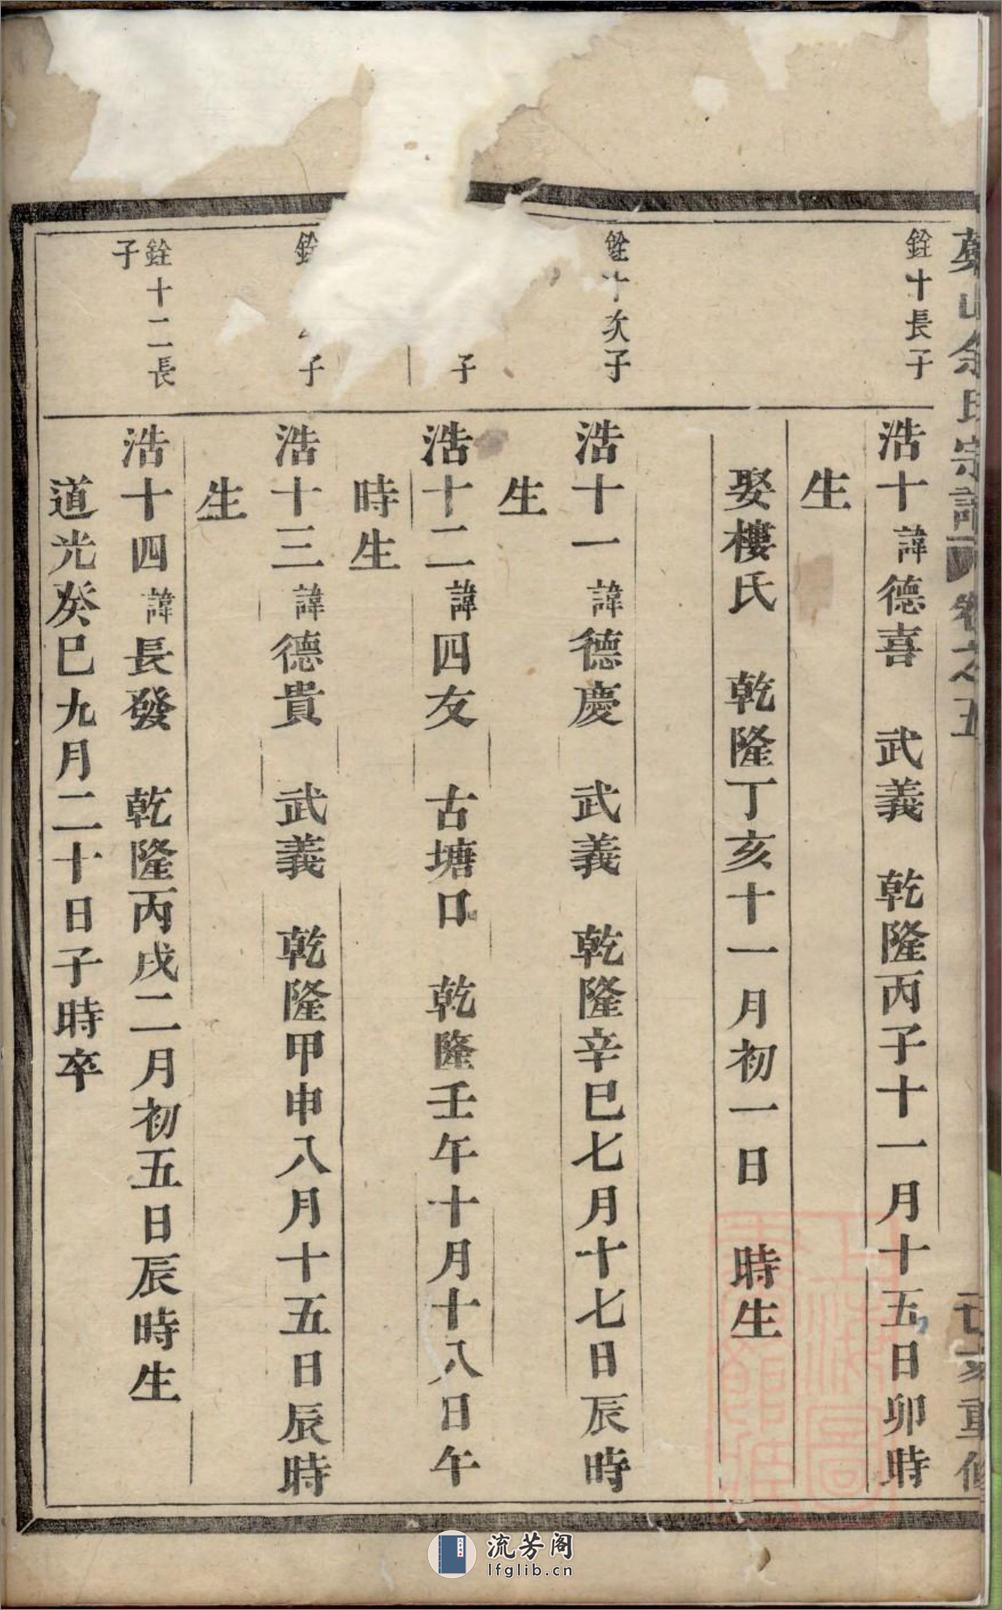 余氏宗譜 卷之五
重修
銓十長子
浩十 諱德喜 武義 乾隆丙子十一月十五日卯時
生
娶樓氏 乾隆丁亥十一月初一日 時生
銓十次子
浩十一 諱德慶 武義 乾隆辛巳七月十七日辰時
生
子
浩十二 諱四友 古塘口 乾隆壬午十月十八日午
時生
銓 子
浩十三 諱德貴 武義 乾隆甲申八月十五日辰時
生
銓十二長
子
浩十四 諱長發 乾隆丙戌二月初五日辰時生
道光癸巳九月二十日子時卒
流芳阁
lfglib.cn